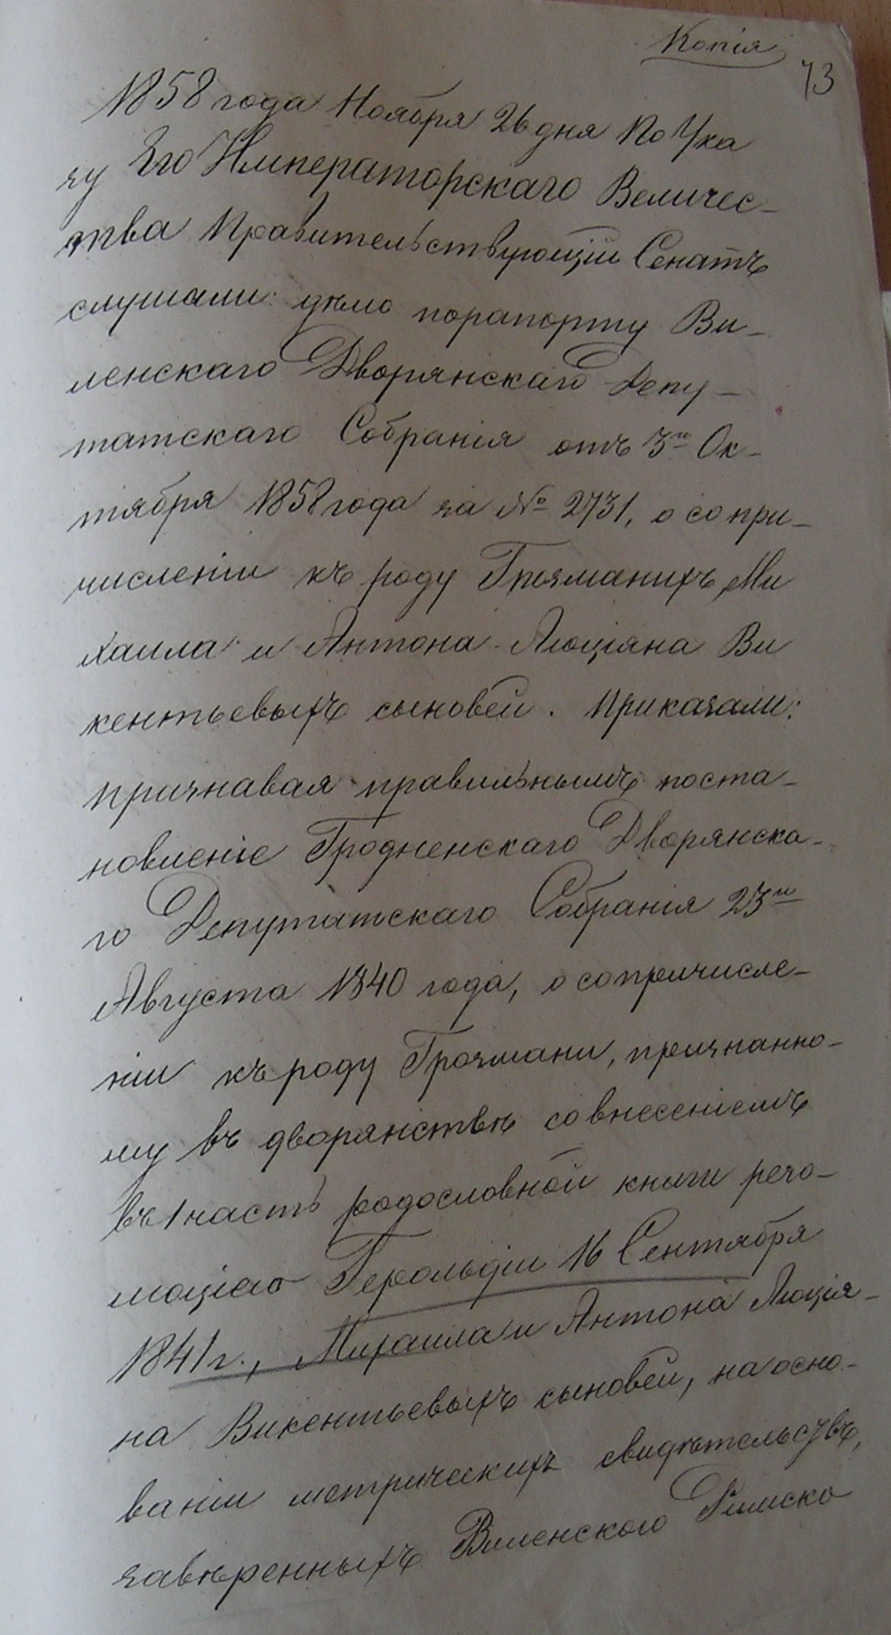 Копія
73
1858 года Ноября 26 дня По Ука
зу Его Императорскаго Величес-
тва Правительствующій Сенатъ
слушали: дѣло порапорту Ви-
ленскаго Дворянскаго Депу-
татскаго Собранія отъ 3го Ок-
тября 1858 года за № 2731, о сопри-
численіи къ роду Грозмановъ Ми
хаила и Антона-Люціяна Ви
кентьевыхъ сыновей. Приказали:
признавая правильнымъ поста-
новленіе Гродненскаго Дворянска-
го Депутатскаго Собранія 23го
Августа 1840 года, о сопричисле-
ніи къ роду Грозмани, признанно-
му въ дворянствѣ со внесеніемъ
въ 1 часть родословной книги резо-
люціею Герольдіи 16 Сентября
1841 г., Михаила и Антона Люція-
на Викентьевыхъ сыновей, на осно-
ваніи метрическихъ свидѣтельсτвъ,
завѣренныхъ Виленского Римско